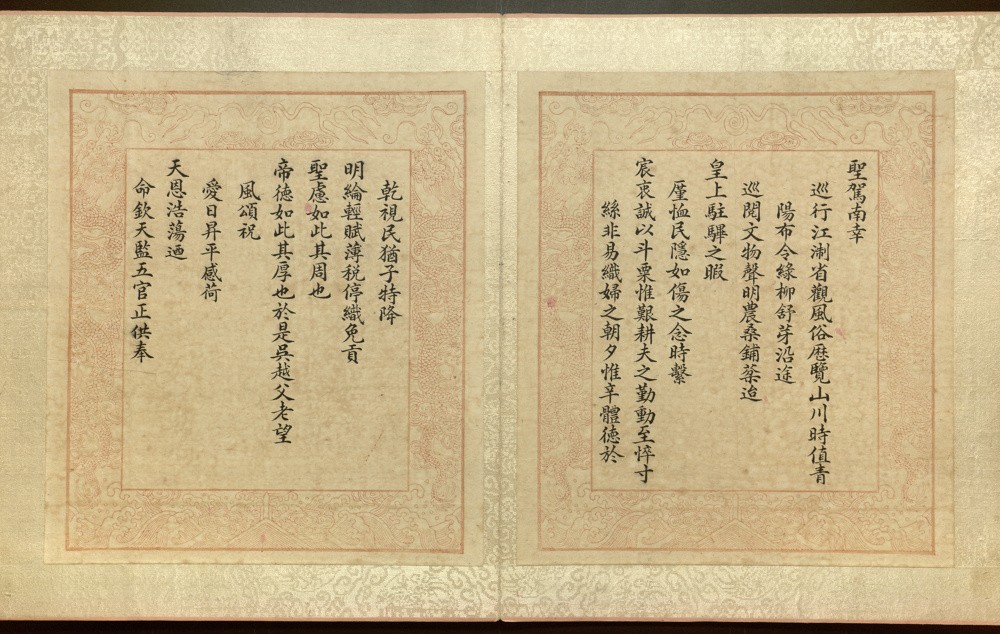 聖駕南幸
巡行江淛省觀風俗歷覽山川時值青
陽布令綠柳舒芽沿途
巡閱文物聲明農桑鋪棻迨
皇上駐驆之暇
厪恤民隱如傷之念時繫
宸衷誠以斗粟惟艱耕夫之勤動至悴寸
絲非易織婦之朝夕惟辛體德於
乾視民猶子特降
明綸輕賦薄稅停織免貢
聖慮如此其周也
帝德如此其厚也於是吳越父老望
風頌祝
愛日昇平感荷
天恩浩蕩迺
命欽天監五官正供奉